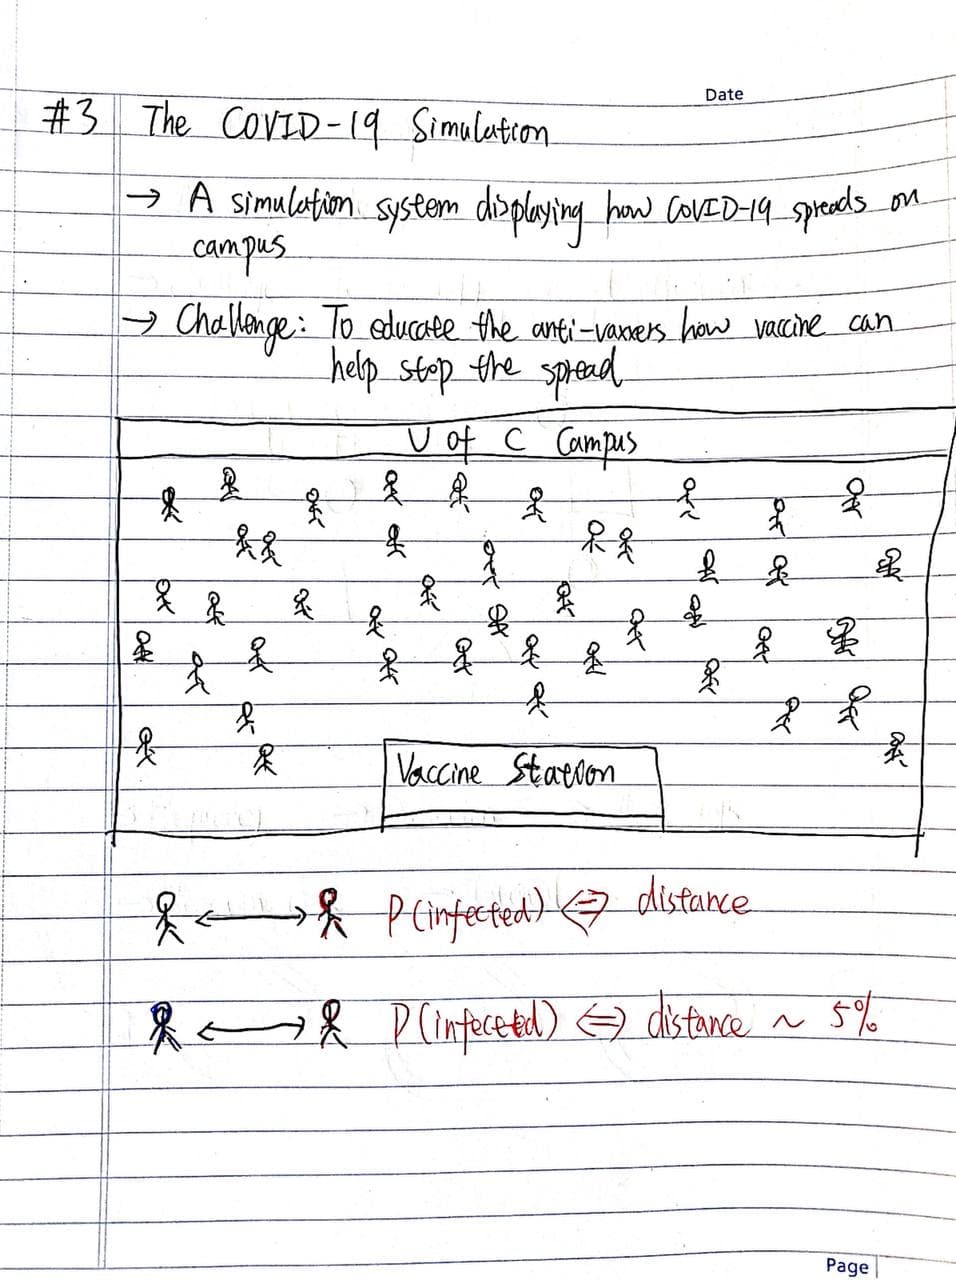 Date
#3 The COVID-19 Simulation
→ A simulation system displaying how COVID-19 spreads on
campus
→ Challenge: To educate the anti-vaxxers how vaccine can
help stop the spread
U of C Campus
Vaccine Station
P(infected) ⇔ distance
P(infeceted) ⇔ distance ~ 5%
Page